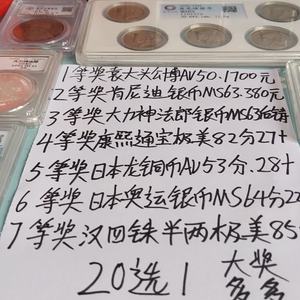 1等奖袁大头付博AU50.1700元
2等奖肯尼迪银币MS63.380元
3等奖大力神法郎银币MS63
4等奖康熙通宝极美82分27+
5等奖日本龙铜币AU53分.28+
6等奖日本奥运银币MS64分22
7等奖汉四铢半两极美85
20选1
大奖
多多